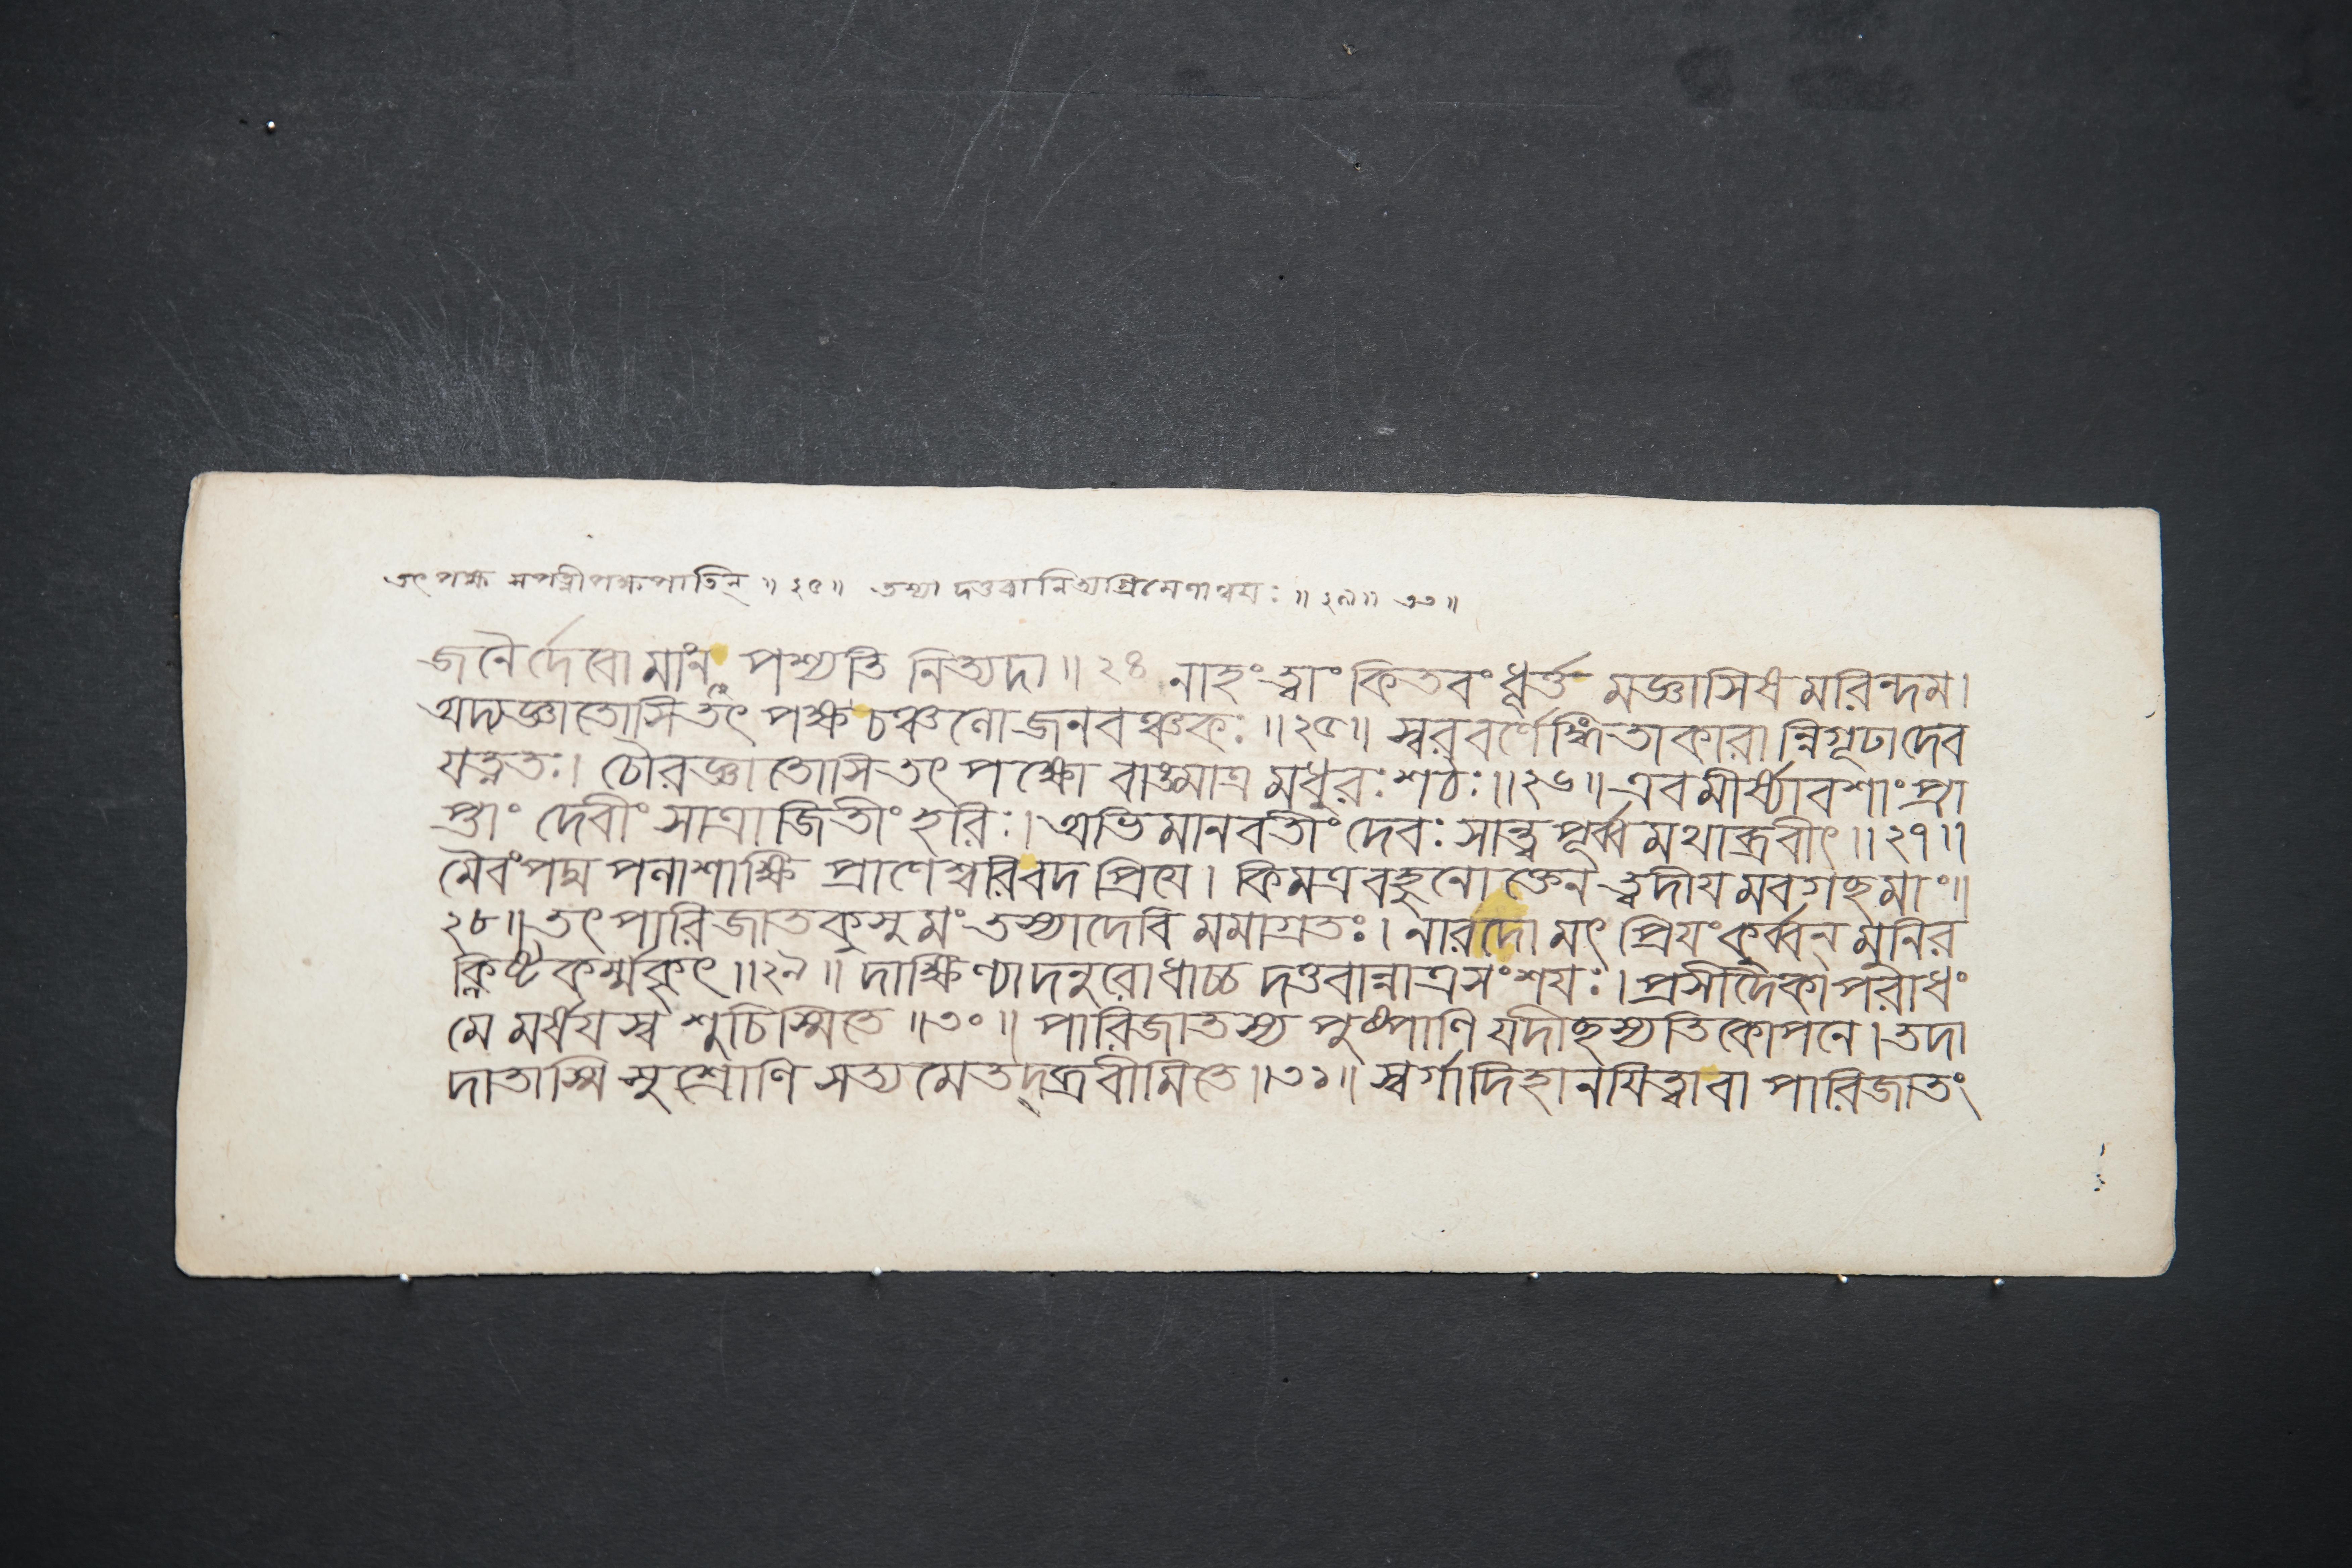 তৎপক্ষ সপত্নীপক্ষপাতিন্ ॥ ২৫ ॥ তস্যা দত্তবানিত্যগ্রিমেণান্বয়ঃ ॥ ২৯ ॥
জনৈর্দেবো মাং ন পশ্যতি নিত্যদা ॥ ২৪ নাহং ত্বাং কিতবং ধূর্ত্ত মজ্ঞাসিষ মরিন্দম।
অদ্যজ্ঞাতোসি তৎ পক্ষ চঞ্চলো জনবঞ্চকঃ ॥২৫॥ স্বরবর্ণেঙ্গিতাকারা ন্নিগূঢাদেব
যত্নতঃ। চৌরজ্ঞাতোসি তৎ পক্ষো বাঙ্মাত্র মধুরঃ শঠঃ ॥২৬॥ এবমীর্ষ্যাবশাং প্রা
প্তাং দেবীং সাত্রাজিতীং হরিঃ। অভিমানবতীং দেবঃ সান্ত্বপূর্ব্ব মথাব্রবীৎ ॥ ২৭ ॥
মৈবং পদ্ম পলাশাক্ষি প্রাণেশ্বরি বদ প্রিযে। কিমত্র বহুনোক্তেন ত্বদীয মবগচ্ছ মাং ॥
২৮ ॥ তৎ পারিজাতকুসুমং তস্যাদেবি মমাগ্রতঃ। নারদো মৎ প্রিযং কুর্ব্বন্ মুনির
ক্লিষ্টকর্ম্মকৃৎ ॥২৯॥ দাক্ষিণ্যাদনুরোধাচ্চ দত্তবান্নাত্রসংশযঃ। প্রসীদৈকাপরাধং
মে মর্ষযস্ব শুচিস্মিতে ॥৩০॥ পারিজাতস্য পুষ্পাণি যদীচ্ছস্যতিকোপনে। তদা
দাতাস্মি সুশ্রোণি সত্য মেতদ্ব্রবীমিতে ॥৩১॥ স্বর্গাদিহানযিত্বাবা পারিজাতং